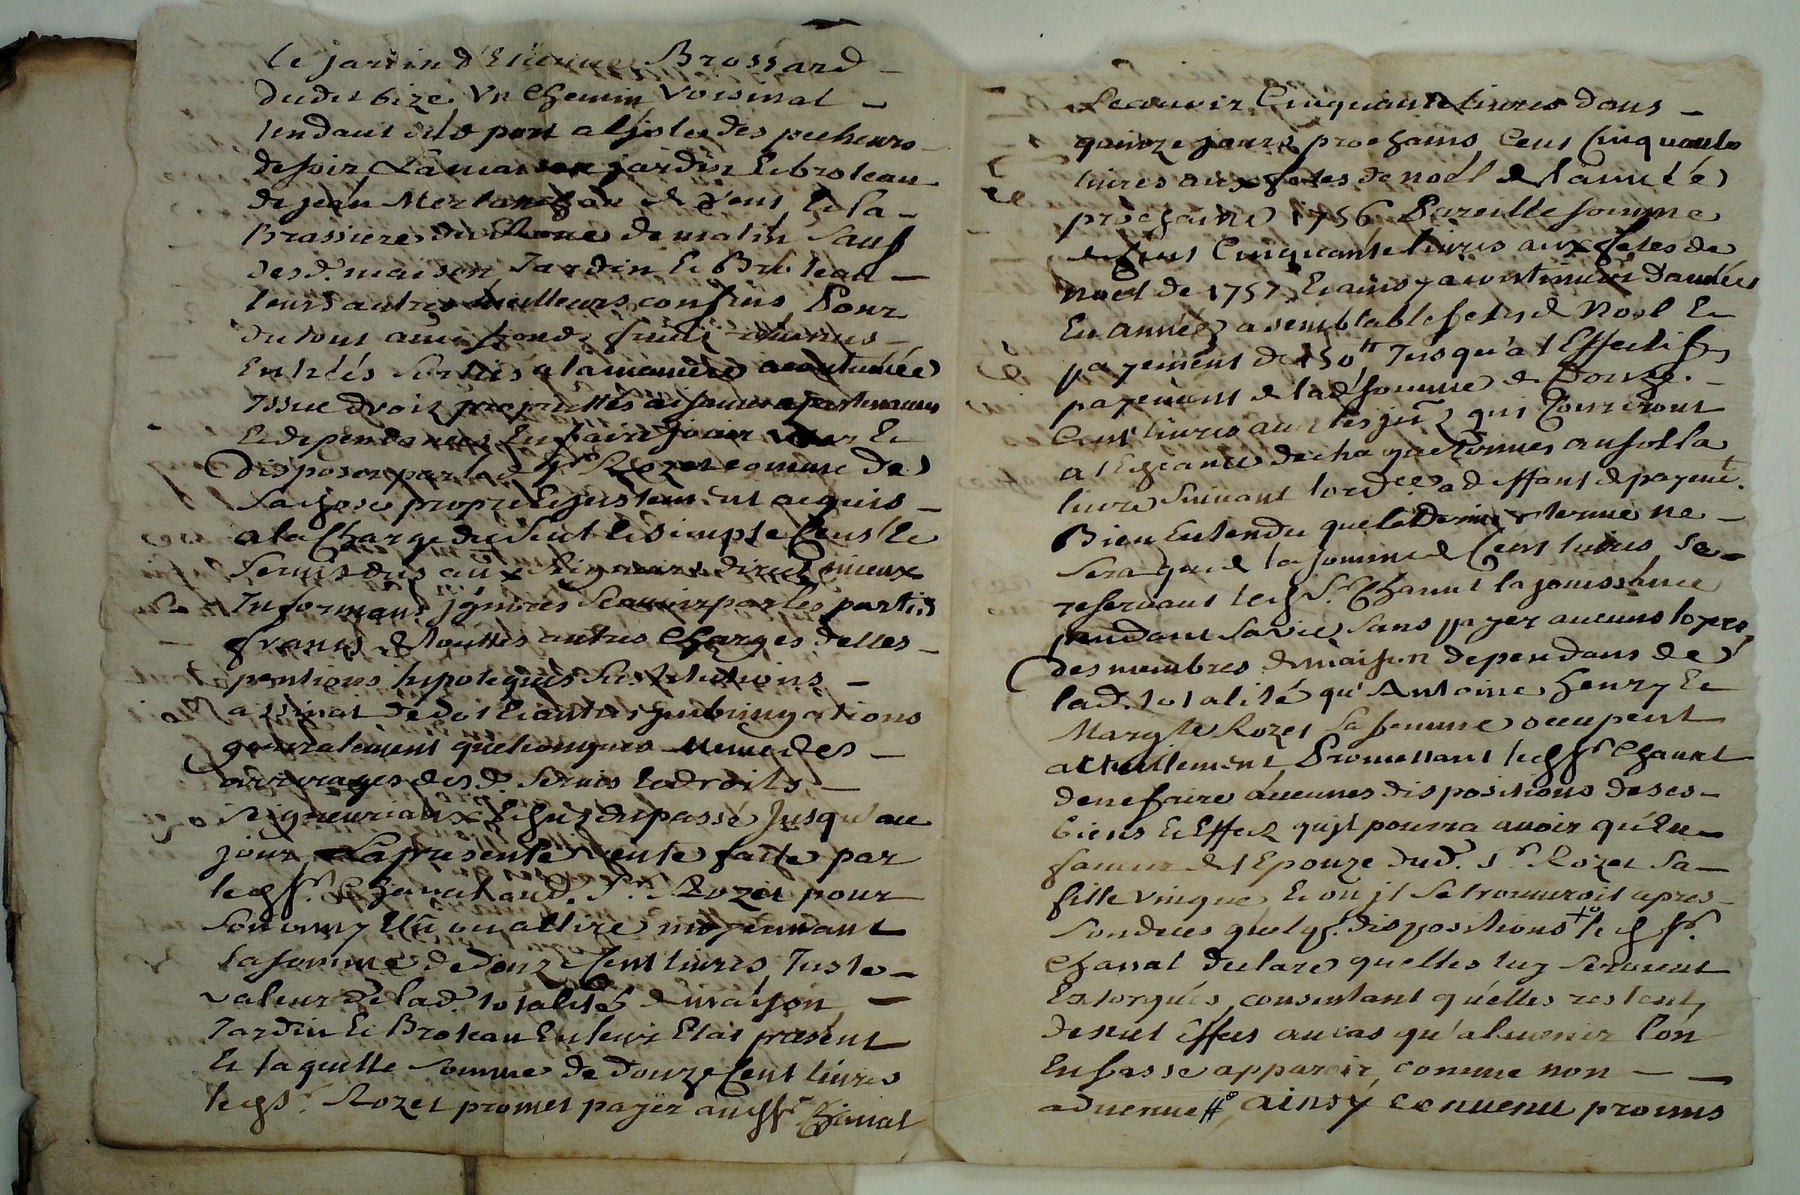 le jardin d'Etienne Brossard
dudit bize Un Chemin Voisinal
tendant du port a l'isles des pecheurs
de soir, La maison jardin Et broteau
de jean Merlanchon de Vent Et la
Brassiere du Rone de matin Sauf
desd. maison Jardin Et Broteau
leurs autres meilleurs confins, Pour
du tout avec fonds
Entrées Sorties a la maniere accoutumée
Issue droits proprietés aisances apartenances
Et dependances En faire jouir user Et
disposer par led. Sr. Rozet comme de
Sa chose propre Et justement acquis
a la Charge du Seul Et simple Cens Et
Servis dus aux Seigneurs directs mieux
Informans ignorés Scavoir par les parties
francs de touttes autres Charges dettes
pentions hipoteques Substitutions
assinat de dot Et autres
generalement quelconques Meme des
arrerages desd. Servis Et droits
Seigneuriaux Echus du passé Jusqu'au
jour, La presente Vente faite par
led. Sr. Chanal aud. Sr. Rozet pour
son amy Elu ou a Elire moyennant
la somme de douze Cent livres Juste
valeur de lad. totalité de maison
Jardin Et Broteau En leur Etat present
Et laquelle somme de douze Cent livres
led. Sr. Rozet promet payer aud. Sr. Chanal
Scavoir Cinquante livres dans
quinze jours prochains Cent Cinquante
livres aux fetes de noël de l'année
prochaine 1756 Pareille somme
de Cent Cinquante livres aux fetes de
noël de 1757 Et ainsy a continuer d'années
En années a semblable fetes de Noel Et
payement de 150 tt Jusqu'a l'Effectif
payement de lad. somme de Douze
Cent livres avec les qui Courront
a l'Echeance de chaque termes au sol la
livre Suivant l'ord.ce a deffaut de payemt.
Bien Entendu que le Dernier terme ne
sera que de la somme de Cent livres Se
reservant led. Sr. Chanal la jouissance
pendant sa vie, sans payer aucuns loyers
des membres de maison dependans de
lad. totalité qu'Antoine henry Et
Margte Rozet Sa femme occupent
actuellement Promettant led. Sr. Chanal
de ne faire aucunes dispositions de ses
biens Et Effets qu'il pourra avoir qu'En
faveur de l'Epouze dud. Sr. Rozet Sa
fille unique Et ou il Se trouveroit apres
Son deces quelq. dispositions le d. Sr.
Chanal declare quelles luy seroient
Extorquées, consentant qu'elles restent
de nul Effet au cas qu'a l'avenir l'on
En fasse apparoir, comme non
advenue, ainsy convenu promis